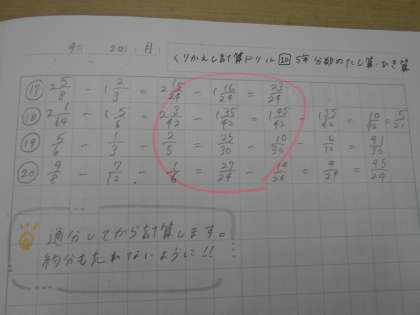 9月 20日(月)
くりかえし計算ドリル 20 5年 分数のたし算・ひき算
⑰ 2 5/8 - 1 2/3 = 2 15/24 - 1 16/24 = 23/24
⑱ 2 1/14 - 1 5/6 = 2 3/42 - 1 35/42 = 1 45/42 - 1 35/42 = 10/42 = 5/21
⑲ 5/6 - 1/3 - 2/5 = 25/30 - 10/30 -
⑳ 9/8 - 7/12 - 1/6 = 27/24 - 14/24 -
通分してから計算します。
約分もわすれないように!!